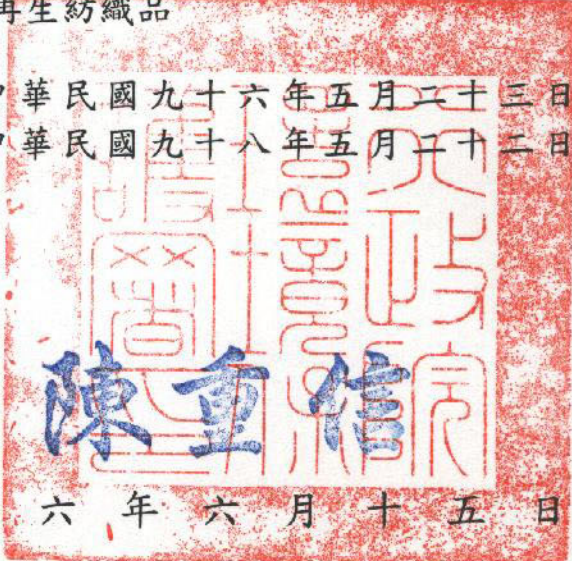 再生紡織品
中華民國九十六年五月二十三日
中華民國九十八年五月二十二日
行政院環境保護署
陳重信
六年六月十五日